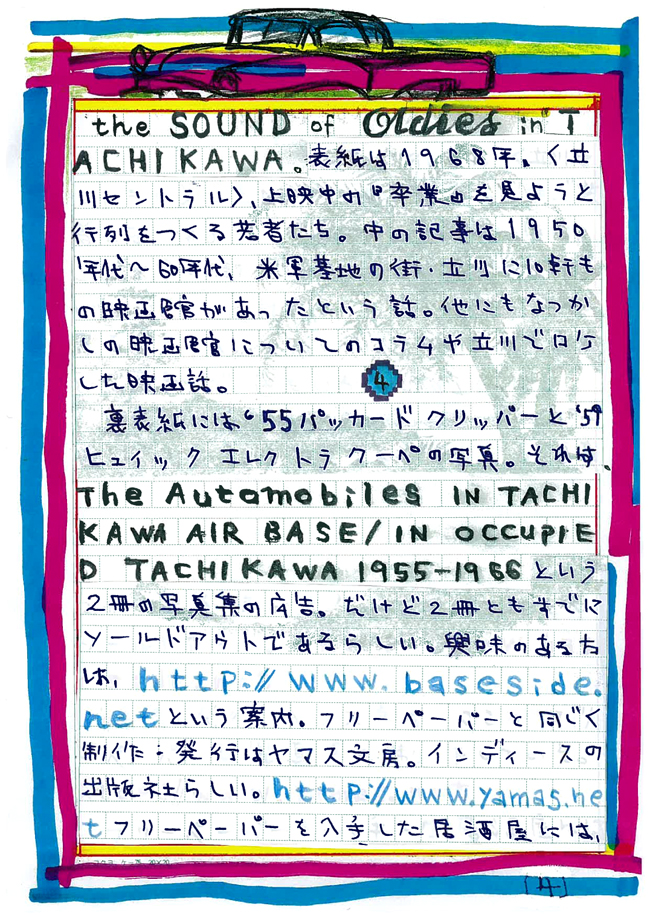 the SOUND of Oldies in T
ACHIKAWA。表紙は1968年。〈立
川セントラル〉、上映中の『卒業』を見ようと
行列をつくる若者たち。中の記事は1950
年代〜60年代、米軍基地の街・立川に10軒も
の映画館があったという話。他にもなつか
しの映画館についてのコラムや立川でロケ
した映画話。
4
裏表紙には'55パッカードクリッパーと'59
ビュイックエレクトラクーペの写真。それは、
The Automobiles IN TACHI
KAWA AIR BASE/IN OCCUPIE
D TACHIKAWA 1955-1966 という
2冊の写真集の広告。だけど2冊ともすでに
ソールドアウトであるらしい。興味のある方
は、http://www.baseside.
netという案内。フリーペーパーと同じく
制作・発行はヤマス文房。インディースの
出版社らしい。http://www.yamas.ne
tフリーペーパーを入手した居酒屋には、
[4]